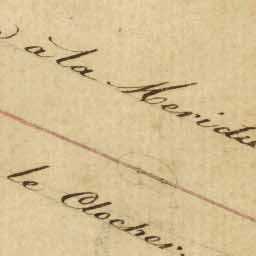 à la Meridie
le Clocher